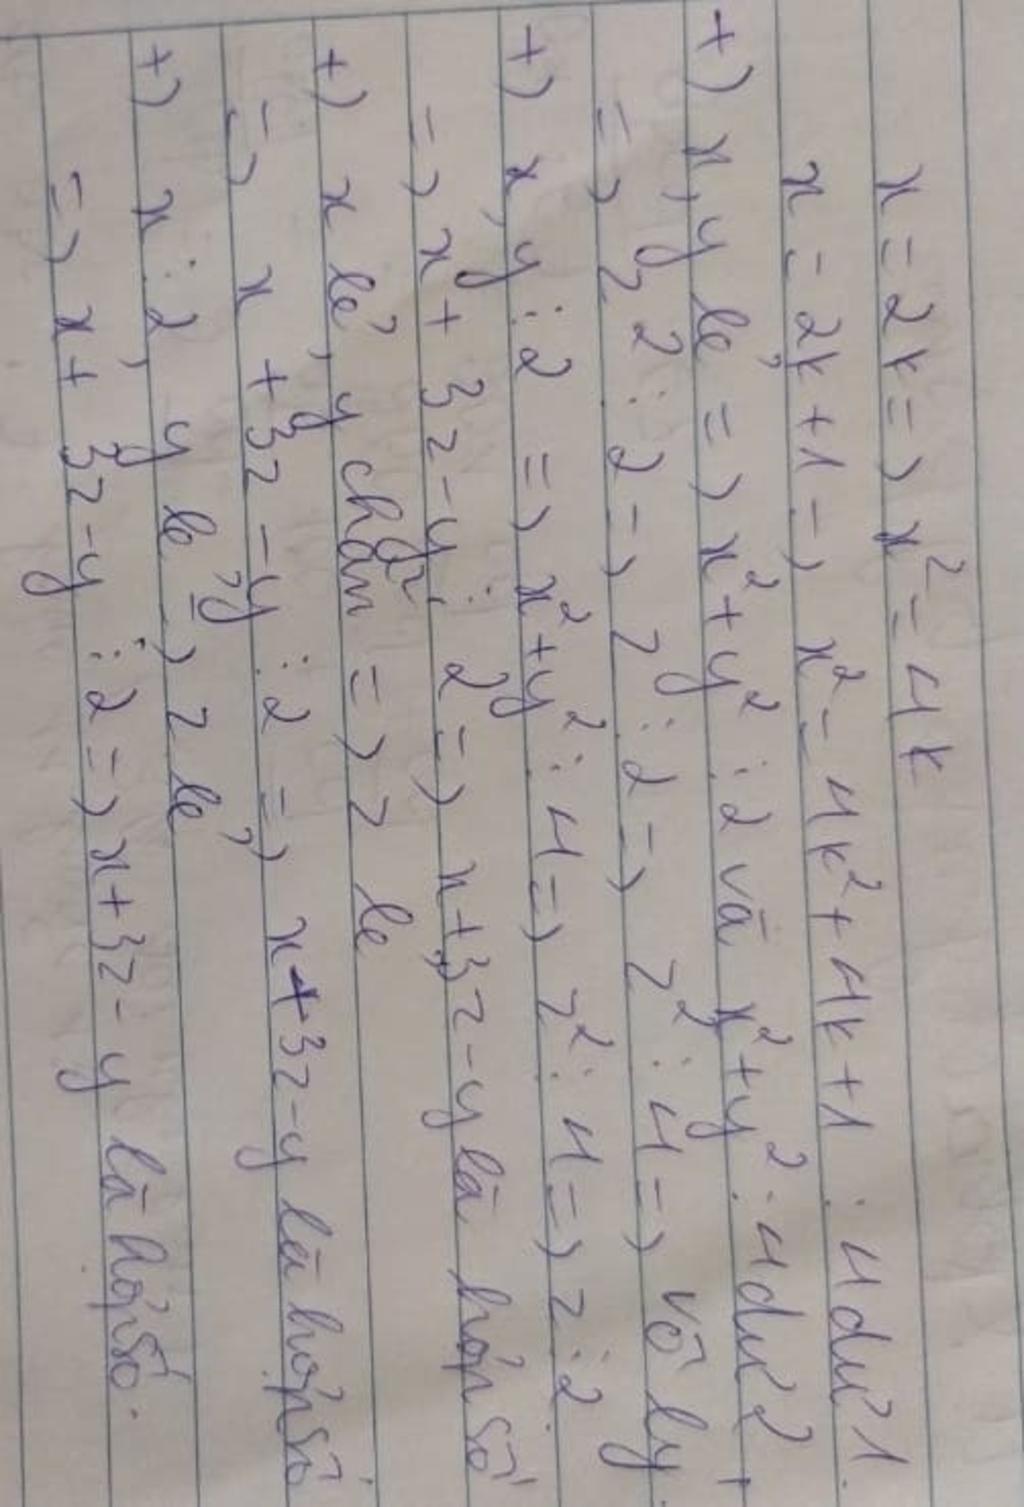 x = 2k => x² = 4k
x = 2k + 1 => x² = 4k² + 4k + 1 : 4 dư 1.
+) x, y lẻ => x² + y² ⋮ 2 và x² + y² : 4 dư 2
=> z ⋮ 2 => z ⋮ 2 => z² ⋮ 4 => vô lý.
+) x, y ⋮ 2 => x² + y² ⋮ 4 => z² ⋮ 4 => z ⋮ 2
=> x + 3z - y ⋮ 2 => x + 3z - y là hợp số
+) x lẻ, y chẵn => z lẻ
=> x + 3z - y ⋮ 2 => x + 3z - y là hợp số.
+) x ⋮ 2, y lẻ => z lẻ
=> x + 3z - y ⋮ 2 => x + 3z - y là hợp số.